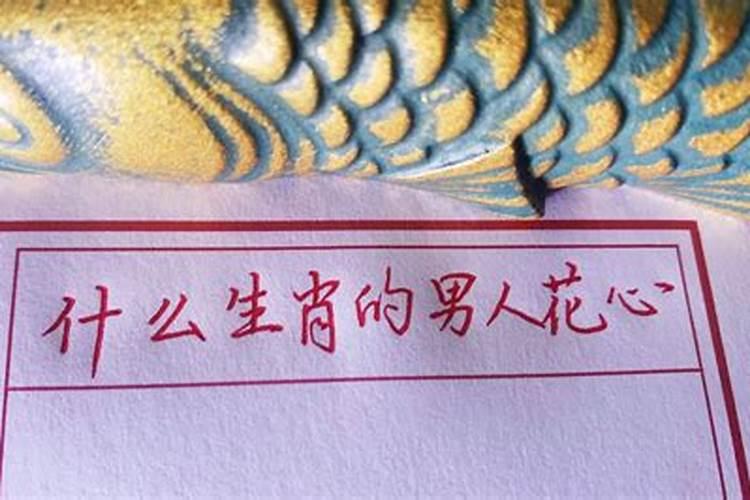 什么生肖的男人花心